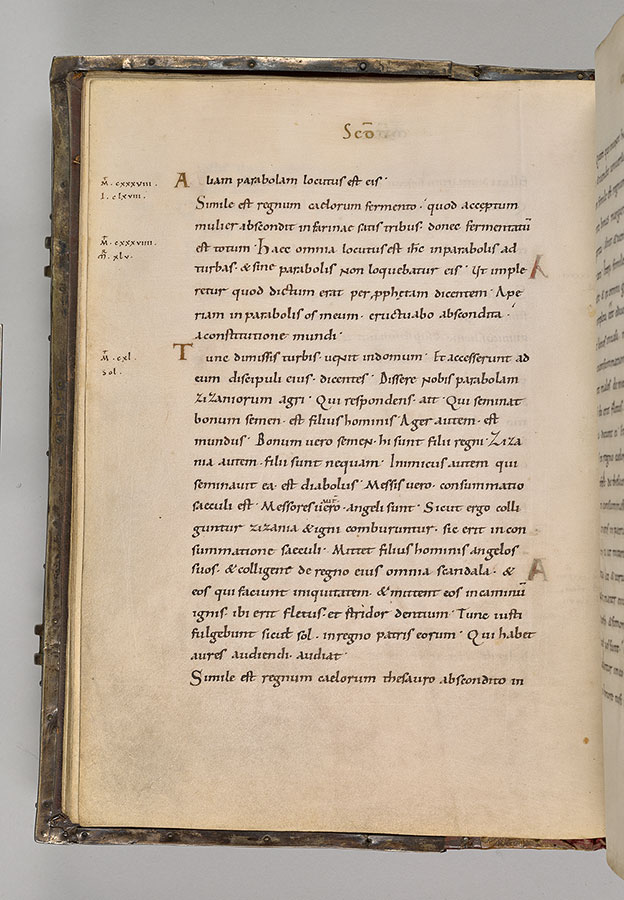 Scō
M̄. cxxxviii.
l. clxviii.
Aliam parabolam locutus est eis.
Simile est regnum caelorum fermento. quod acceptum
mulier abscondit in farinae satis tribus. donec fermentatū
M̄. cxxxviiii.
m̄. xlv.
est totum. Haec omnia locutus est ihc in parabolis ad
turbas. & sine parabolis non loquebatur eis. Ut imple
retur quod dictum erat per pphetam dicentem. Ape
riam in parabolis os meum. eructuabo abscondita.
a constitutione mundi.
M̄. cxl.
sol.
Tunc dimissis turbis. venit in domum. Et accesserunt ad
eum discipuli eius. dicentes. Dissere nobis parabolam
zizaniorum agri. Qui respondens. ait. Qui seminat
bonum semen. est filius hominis. Ager autem. est
mundus. Bonum vero semen. hi sunt filii regni. Ziza
nia autem. filii sunt nequam. Inimicus autem qui
seminavit ea. est diabolus. Messis vero. consummatio
saeculi est. Messores vero. angeli sunt. Sicut ergo colli
guntur zizania & igni comburuntur. sic erit in con
summatione saeculi. Mittet filius hominis angelos
suos. & colligent de regno eius omnia scandala. &
eos qui faciunt iniquitatem. & mittent eos in caminū
ignis. ibi erit fletus. et stridor dentium. Tunc iusti
fulgebunt sicut sol. in regno patris eorum. Qui habet
aures audiendi. audiat.
Simile est regnum caelorum thesauro abscondito in